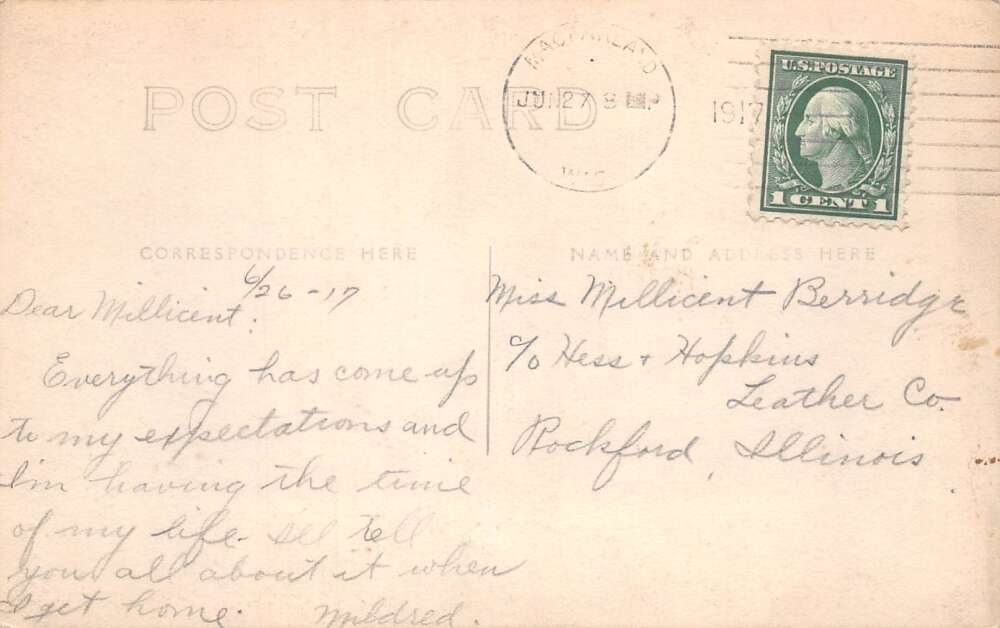 POST CARD
MACFARLAND
JUN 27 9
1917
WIS.
U.S. POSTAGE
1 CENT 1
CORRESPONDENCE HERE
NAME AND ADDRESS HERE
6/26-17
Dear Millicent:
Everything has come up
to my expectations and
I'm having the time
of my life. I'll tell
you all about it when
I get home. Mildred.
Miss Millicent Berridge
c/o Hess + Hopkins
Leather Co.
Rockford, Illinois